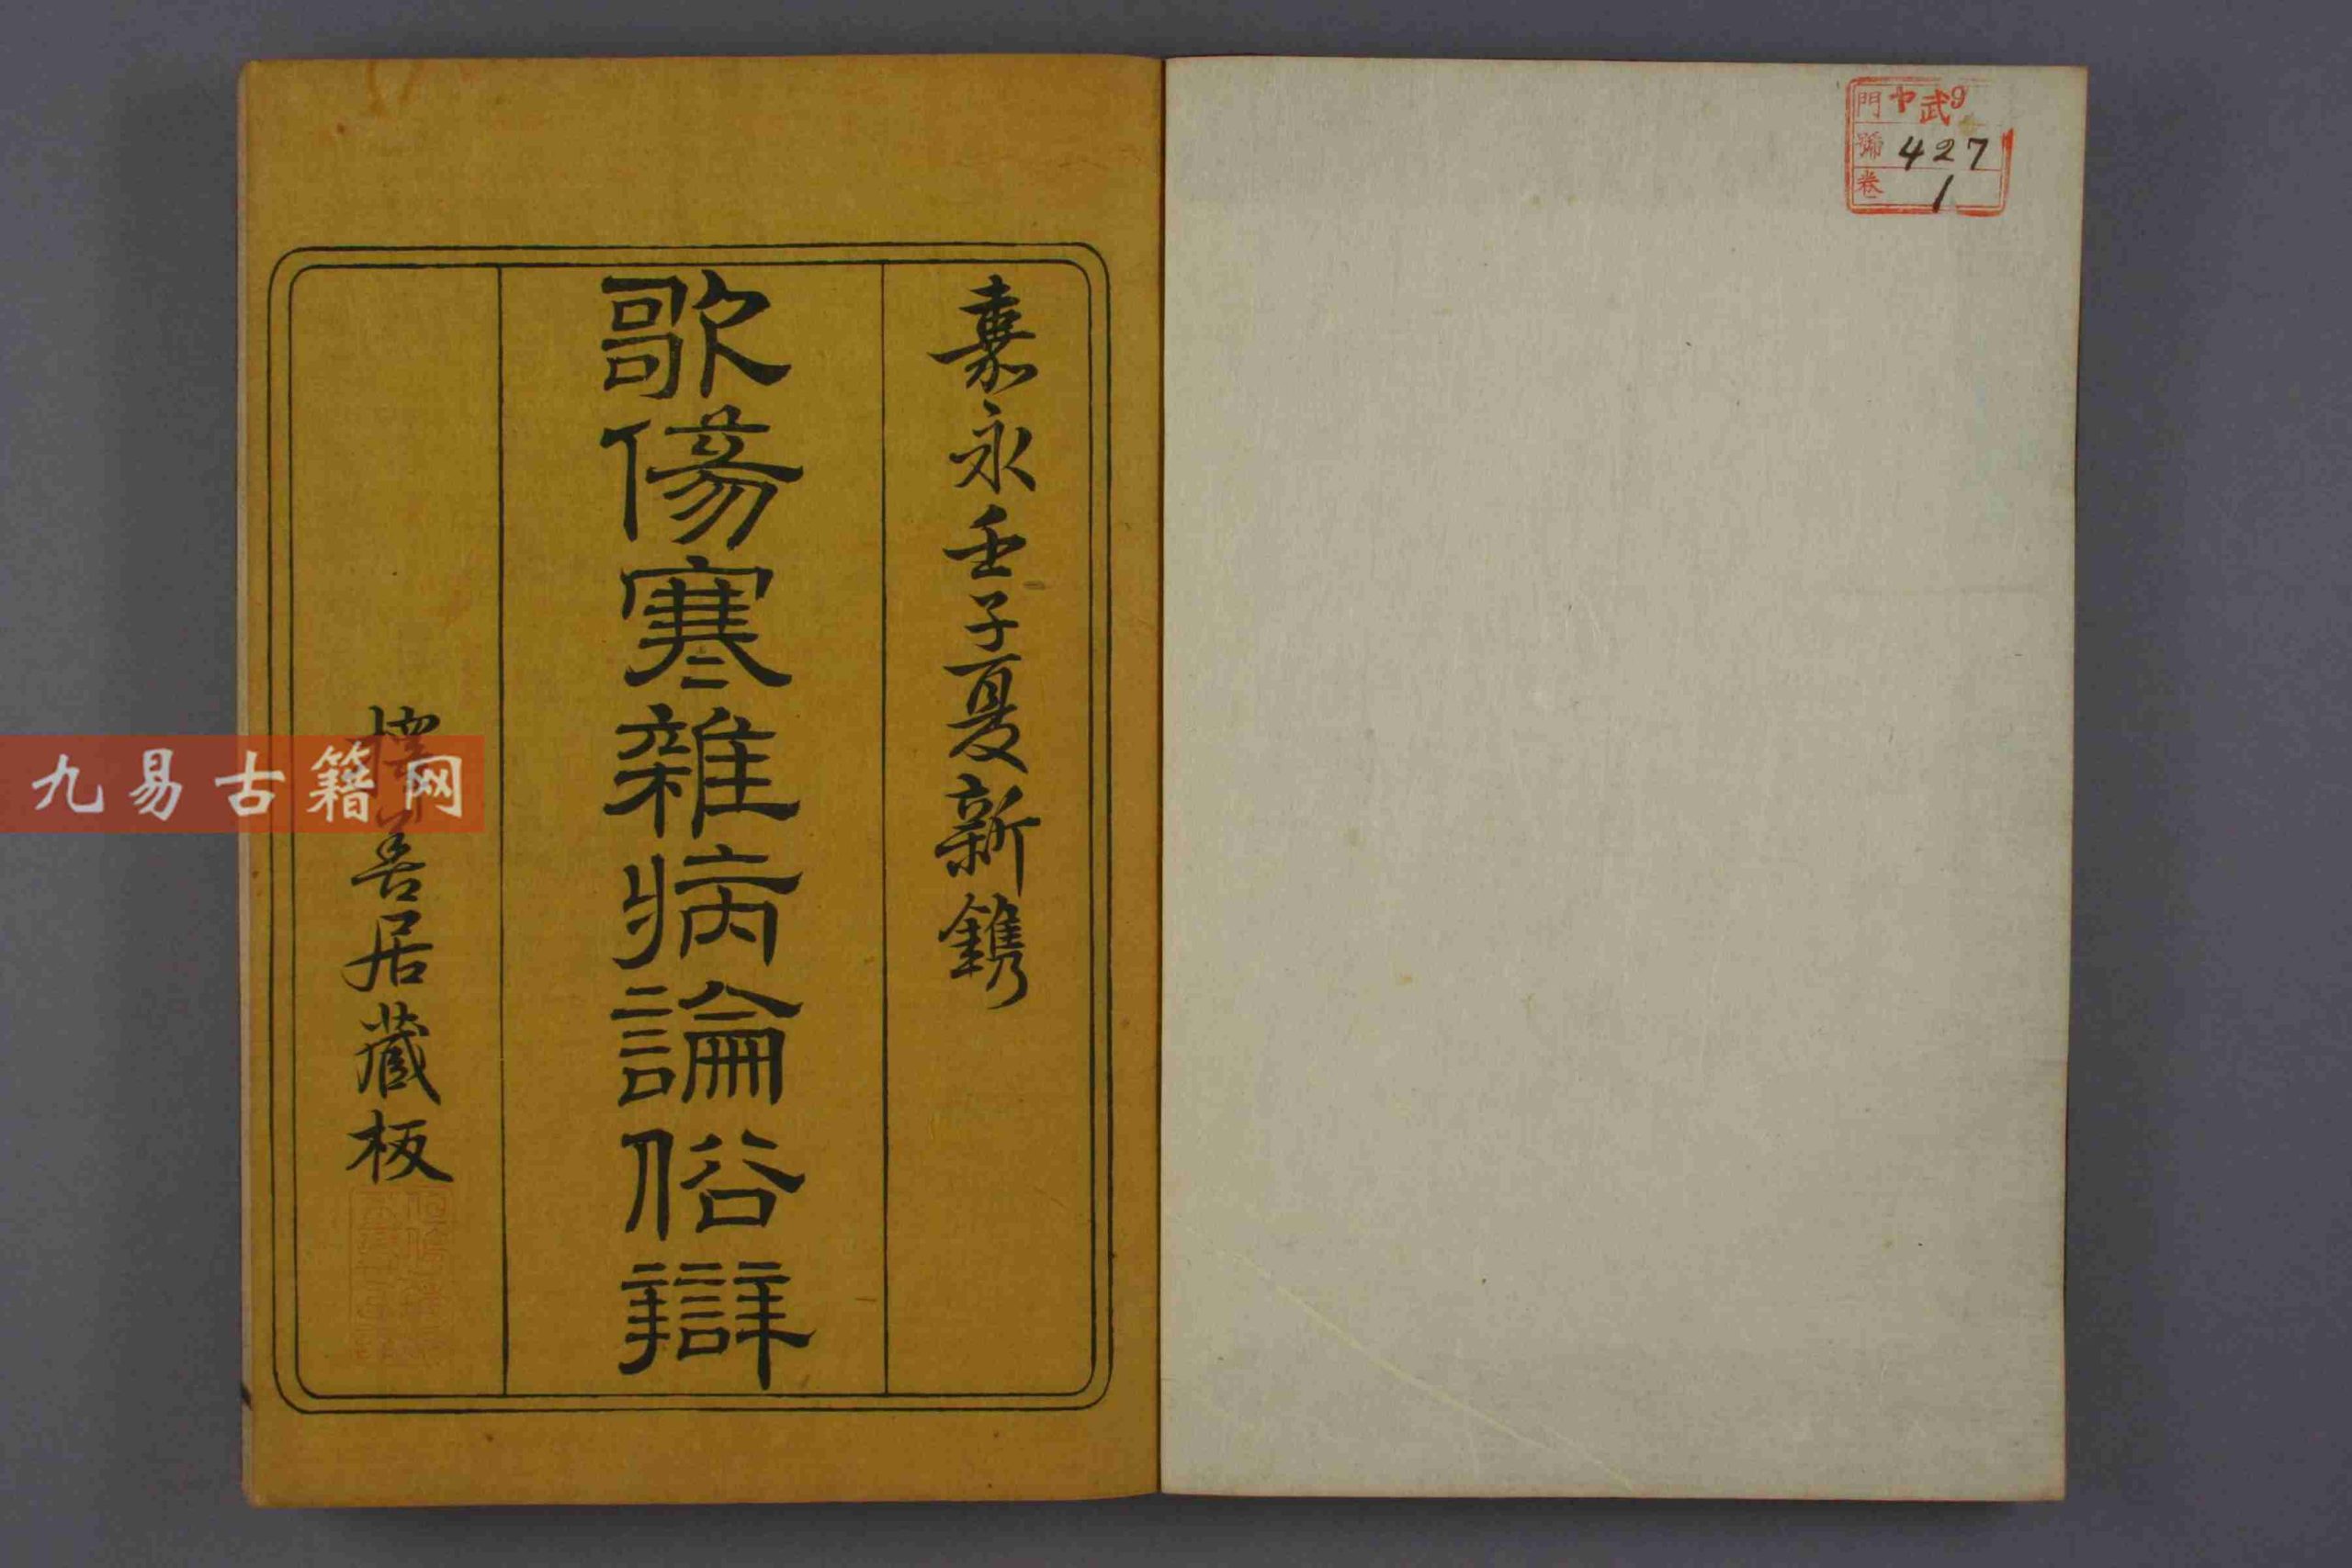 門 ヤ武9
號 427
卷 1
嘉永壬子夏新鐫
歌傷寒雜病論俗辯
擇善居藏板
九易古籍网